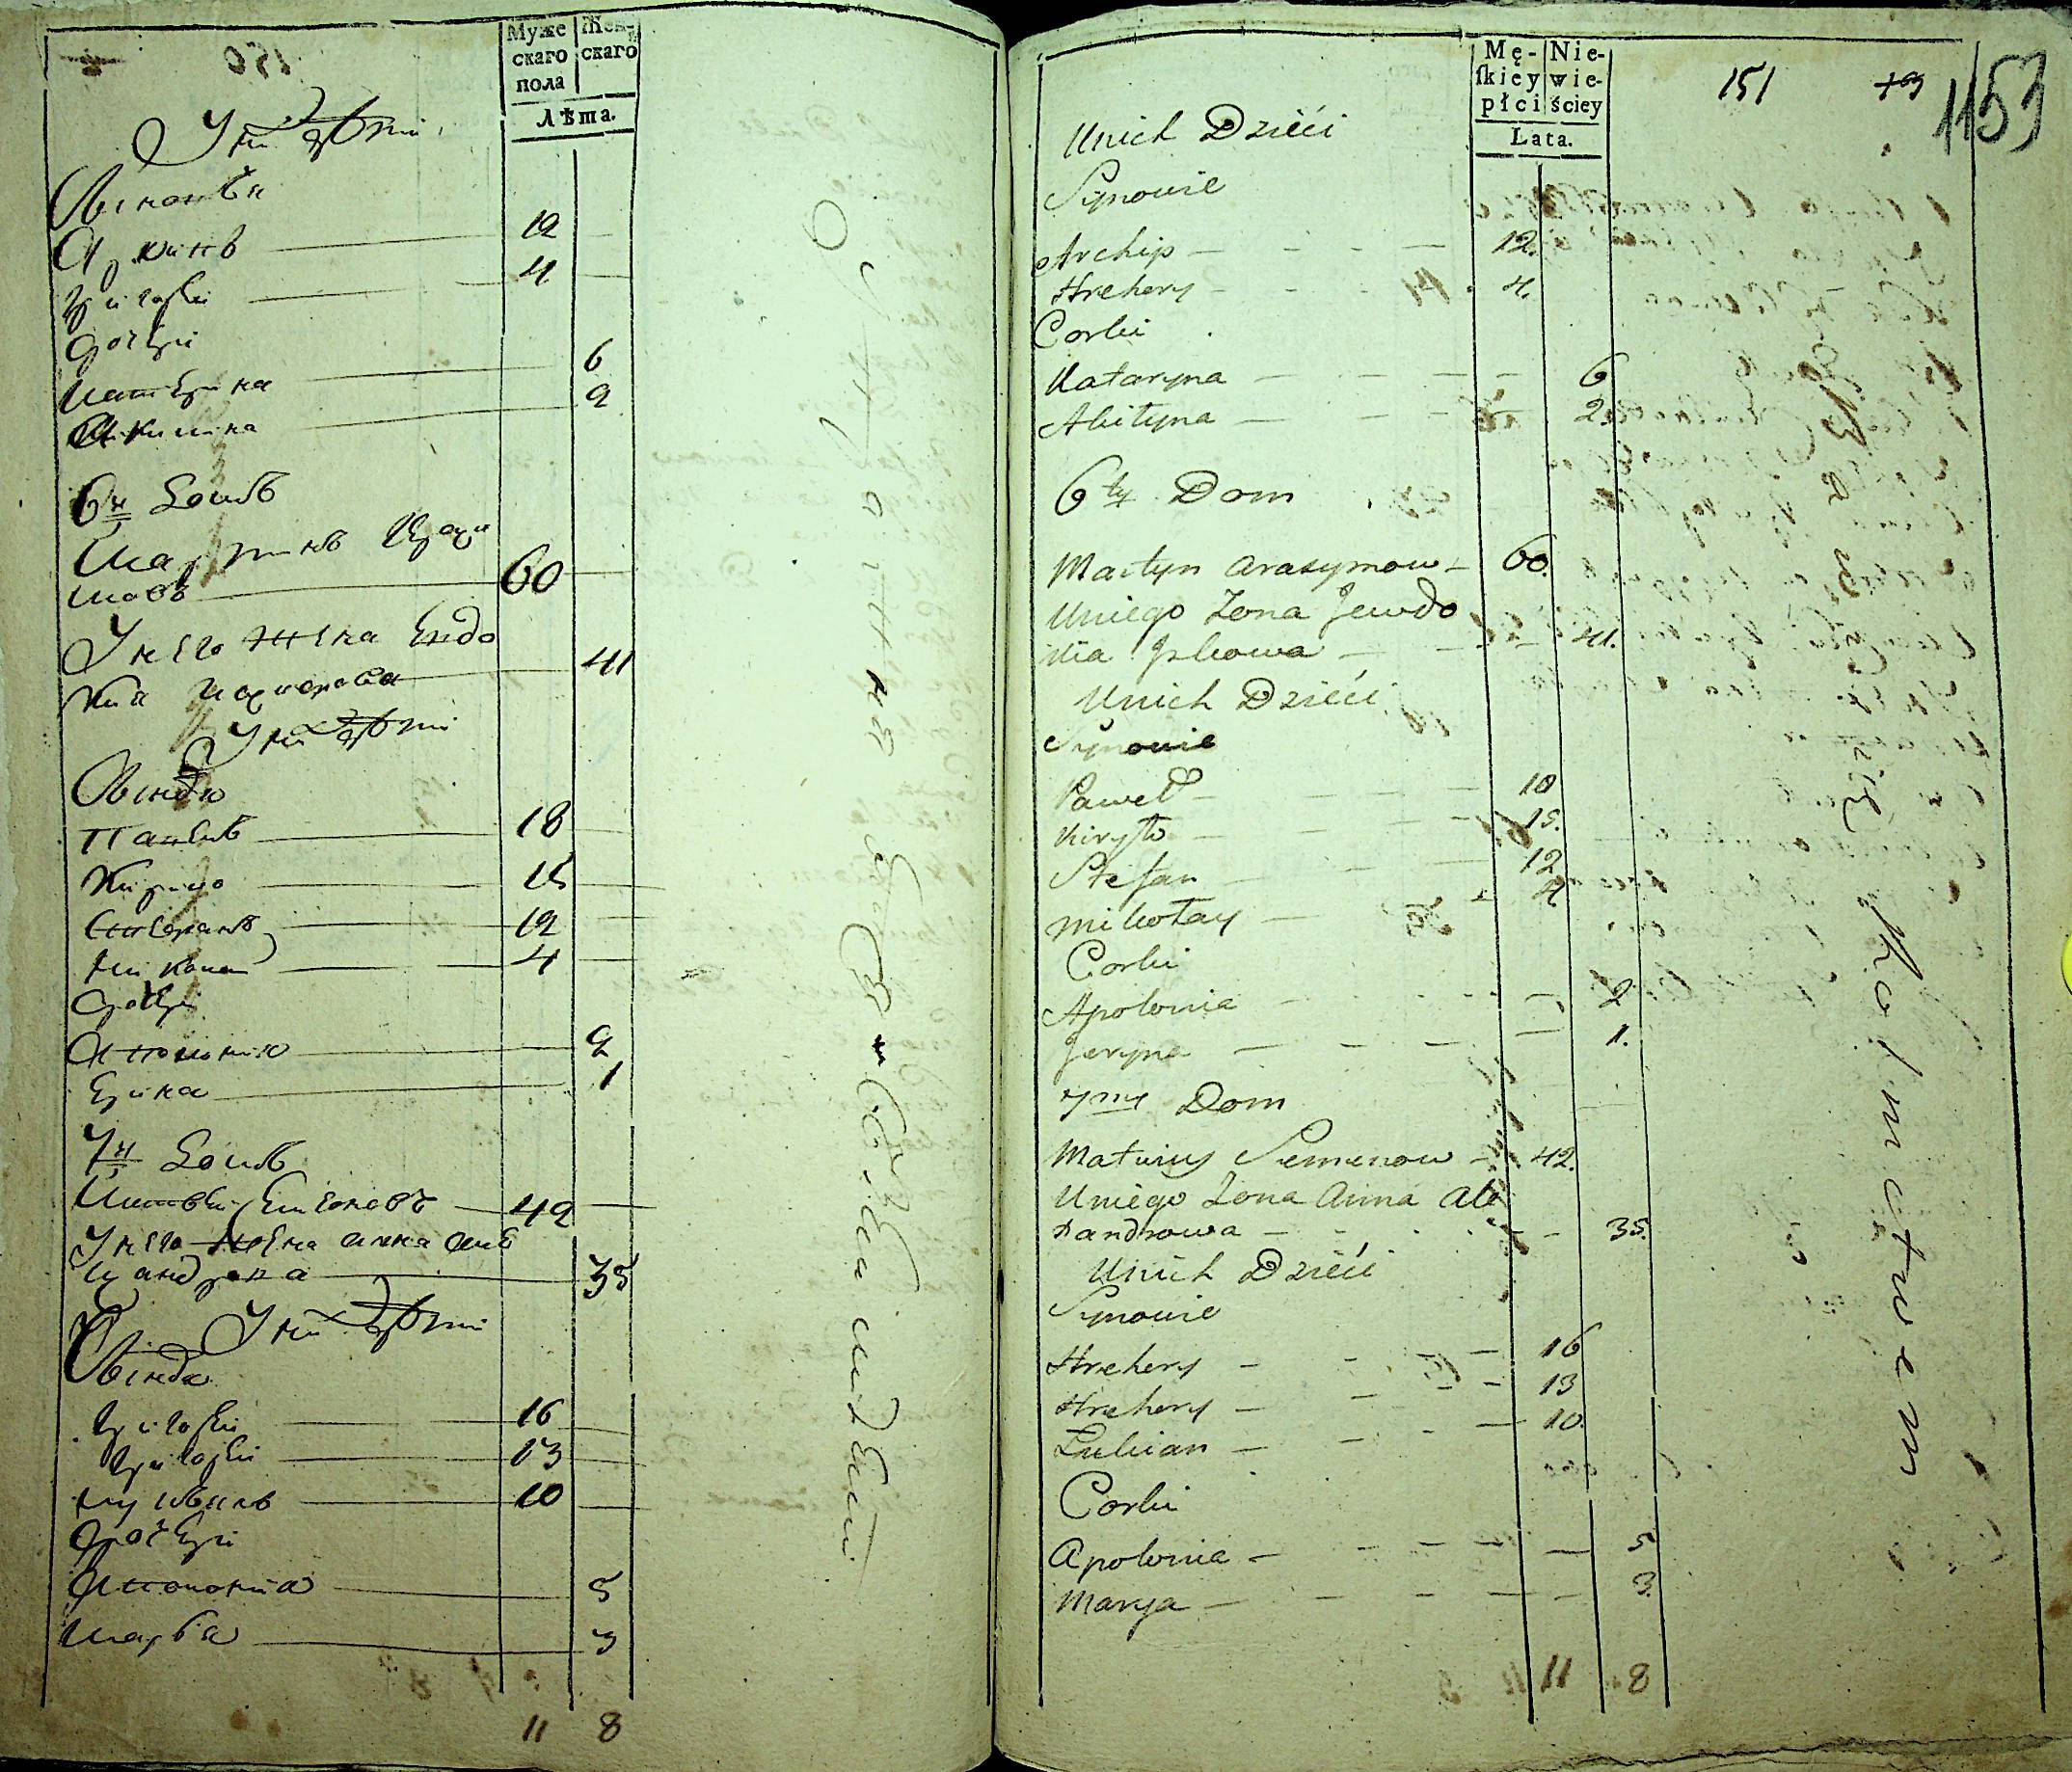 Муже
скаго
пола
Жен-
скаго
Лѣта.
У них дѣти
12
4
дочери
Катерина 6
2
6й Домъ
Мартинъ Гераси
мовъ 60
У него жена Евдо
кия 41
У них дѣти
Павелъ 18
Кирило 15
Стефанъ 12
Николай 4
дочери
Аполония 2
Ерина 1
7й Домъ
Матвей Семеновъ 42
У него жена Анна Але
ксандрова 35
У них дѣти
Григорей 16
Григорей 13
Лукьянъ 10
дочери
Аполония 5
Марья 3
11 8
Mę-
skiey
płci
Nie-
wie-
ściey
Lata.
151
1153
Unich Dzieći
Synowie
Archip 12.
Hrehory 4.
Corki
Kataryna 6
Akilyna 2.
6ty Dom
Martyn Arasymow 60.
Uniego Zona Jewdo
kia 41.
Unich Dzieći
Synowie
Paweł 18
Kiryło 15.
Stefan 12
Mikołay 4
Corki
Apolonia 2
Jeryna 1.
7my Dom
Matwiey Semenow 42.
Uniego Zona Anna Ale
xandrowa 35.
Unich Dzieći
Synowie
Hrehory 16
Hrehory 13
Łukian 10.
Corki
Apolonia 5
Marya 3
11 8